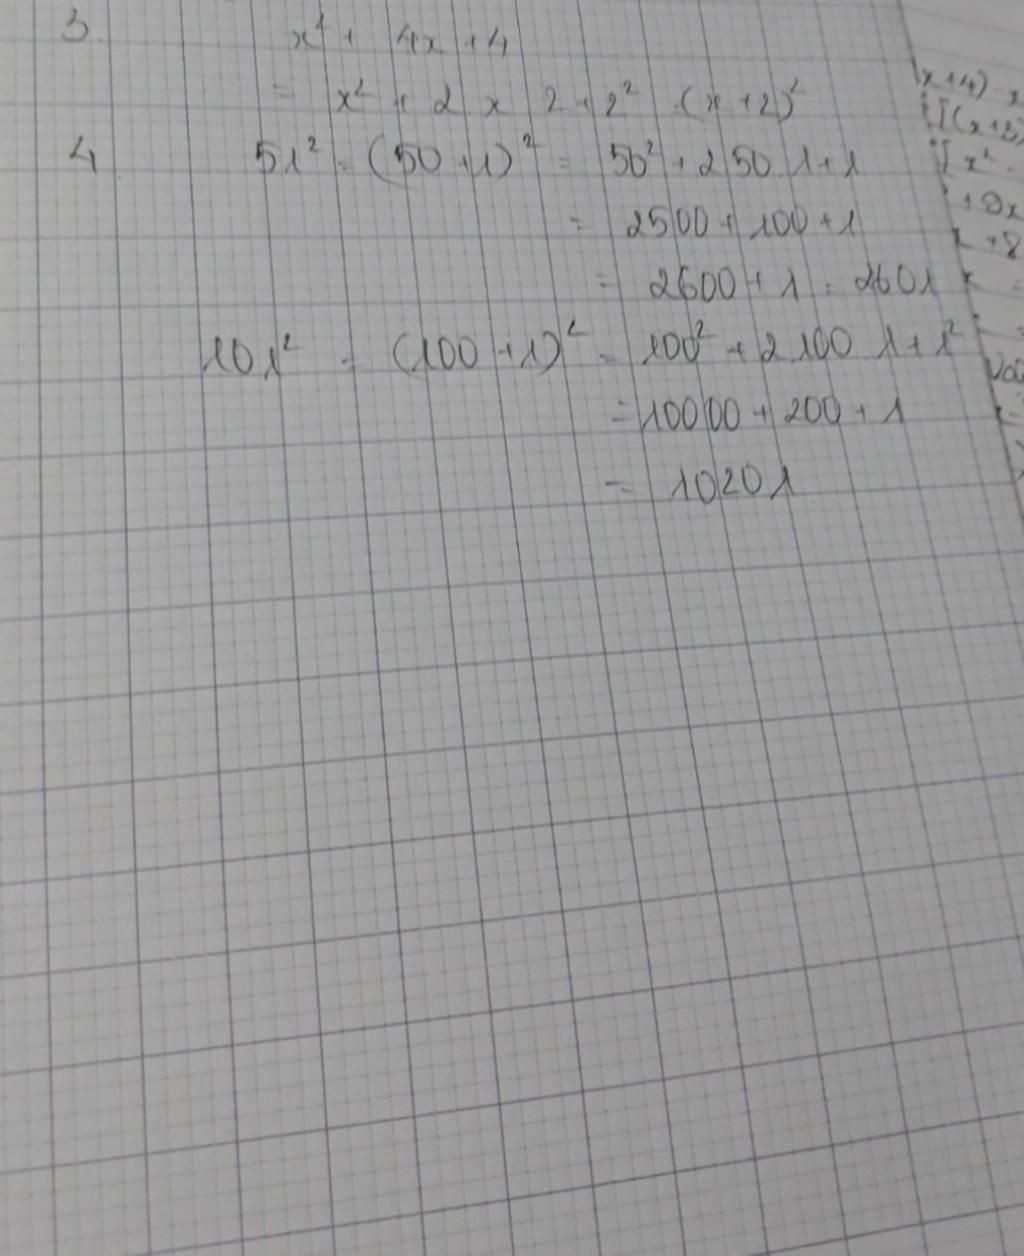 3. x² + 4x + 4
= x² + 2 x 2 + 2² = (x + 2)²
4 51² = (50 + 1)² = 50² + 2 50 1 + 1
= 2500 + 100 + 1
= 2600 + 1 = 2601
101² = (100 + 1)² = 100² + 2 100 1 + 1²
= 10000 + 200 + 1
= 10201
x + 4)
[(x + 3)
[x²
+ 8x
+ 8